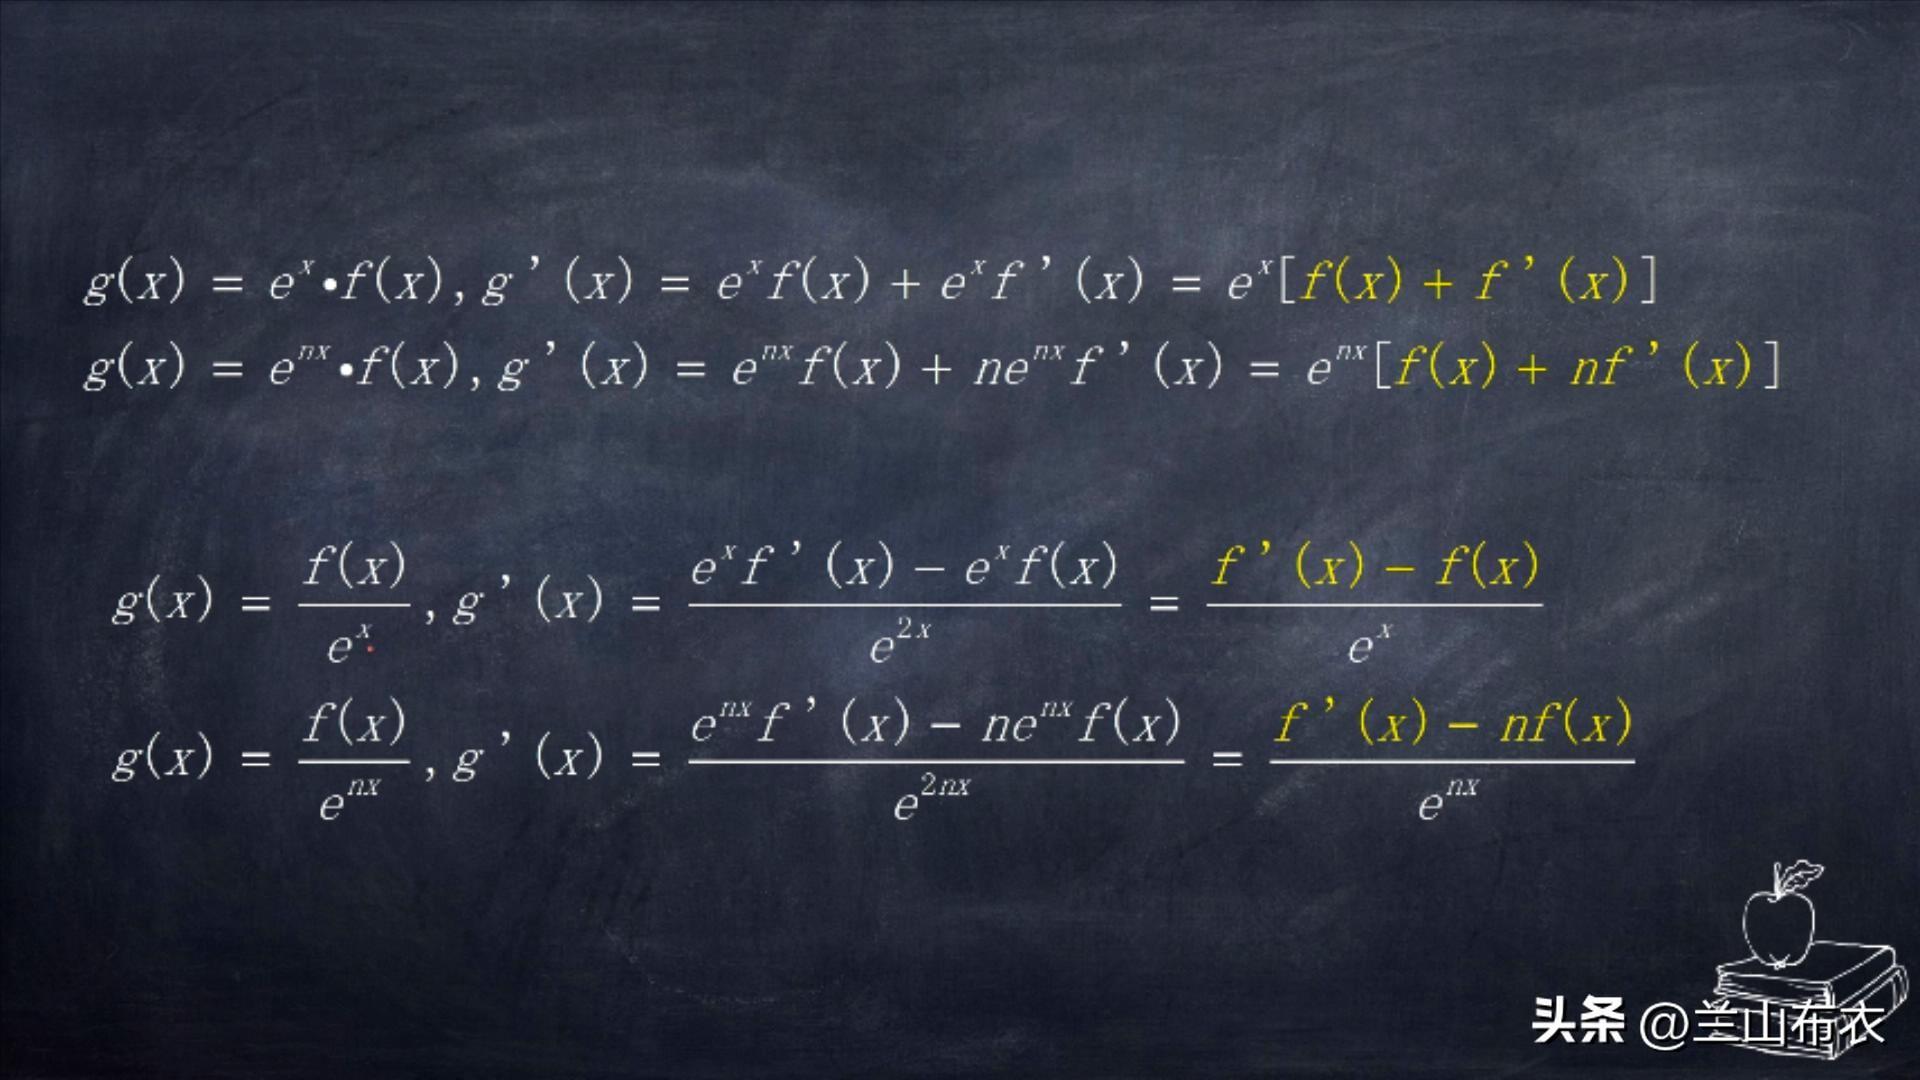 g(x) = e^x•f(x), g'(x) = e^x f(x) + e^x f'(x) = e^x[f(x) + f'(x)]
g(x) = e^{nx}•f(x), g'(x) = e^{nx} f(x) + ne^{nx} f'(x) = e^{nx}[f(x) + nf'(x)]
g(x) = \frac{f(x)}{e^x}, g'(x) = \frac{e^x f'(x) - e^x f(x)}{e^{2x}} = \frac{f'(x) - f(x)}{e^x}
g(x) = \frac{f(x)}{e^{nx}}, g'(x) = \frac{e^{nx} f'(x) - ne^{nx} f(x)}{e^{2nx}} = \frac{f'(x) - nf(x)}{e^{nx}}
头条 @兰山布衣